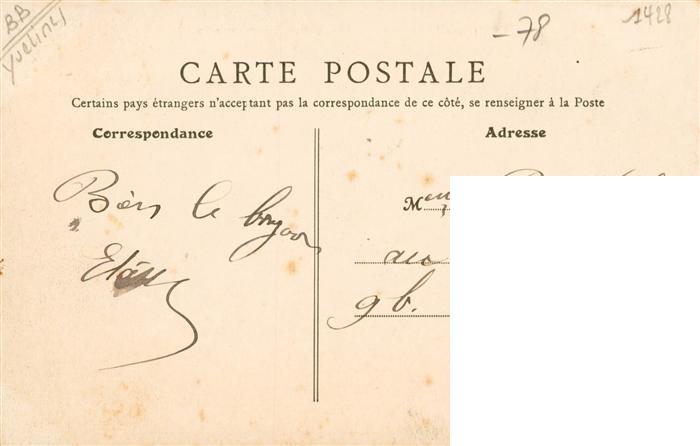 BB
Yvelines
-78
1428
CARTE POSTALE
Certains pays étrangers n'acceptant pas la correspondance de ce côté, se renseigner à la Poste
Correspondance
Adresse
Bien le bonjour
M
au
9 b.